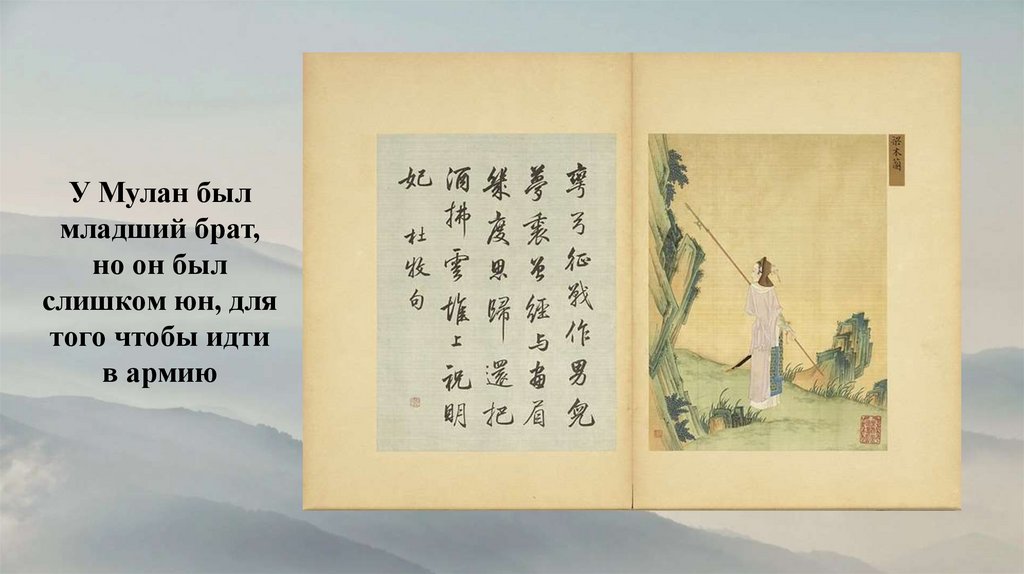 У Мулан был
младший брат,
но он был
слишком юн, для
того чтобы идти
в армию
彎弓征戰作男兒
夢裏曾經与畫眉
幾度思歸還把
酒拂雲堆上祝明
妃 杜牧句
梁木蘭